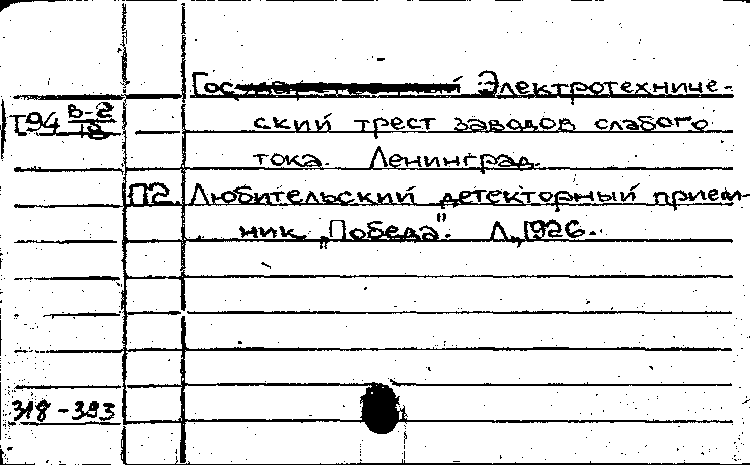 Гос Электротехниче-
Т94 В-2/12 ский трест заводов слабого
тока. Ленинград.
П2. Любительский детекторный прием-
ник „Победа". Л., 1926.
318-393